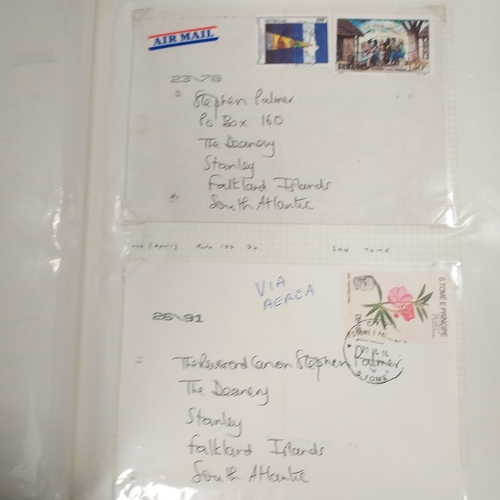 AIR MAIL
23\76
Stephen Palmer
Po Box 160
The Deanery
Stanley
Falkland Islands
South Atlantic
SAO TOME
VIA
AEREA
S. TOMÉ E PRÍNCIPE
26\91
The Reverend Canon Stephen Palmer
S. TOME
The Deanery
Stanley
Falkland Islands
South Atlantic